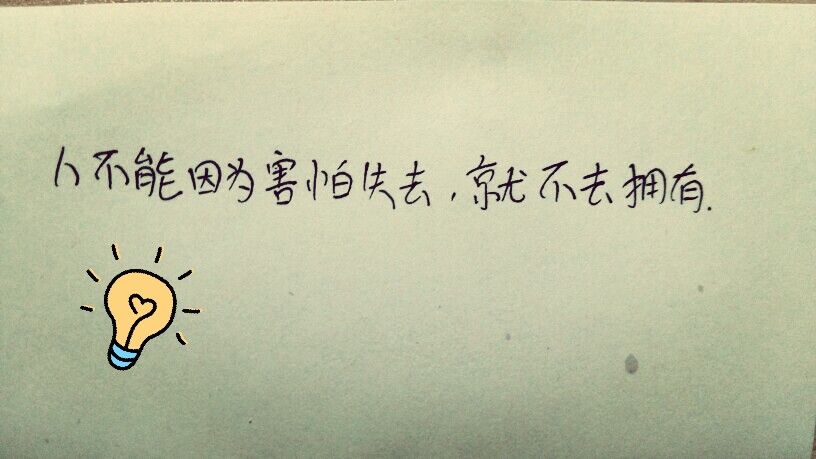 人不能因为害怕失去,就不去拥有.